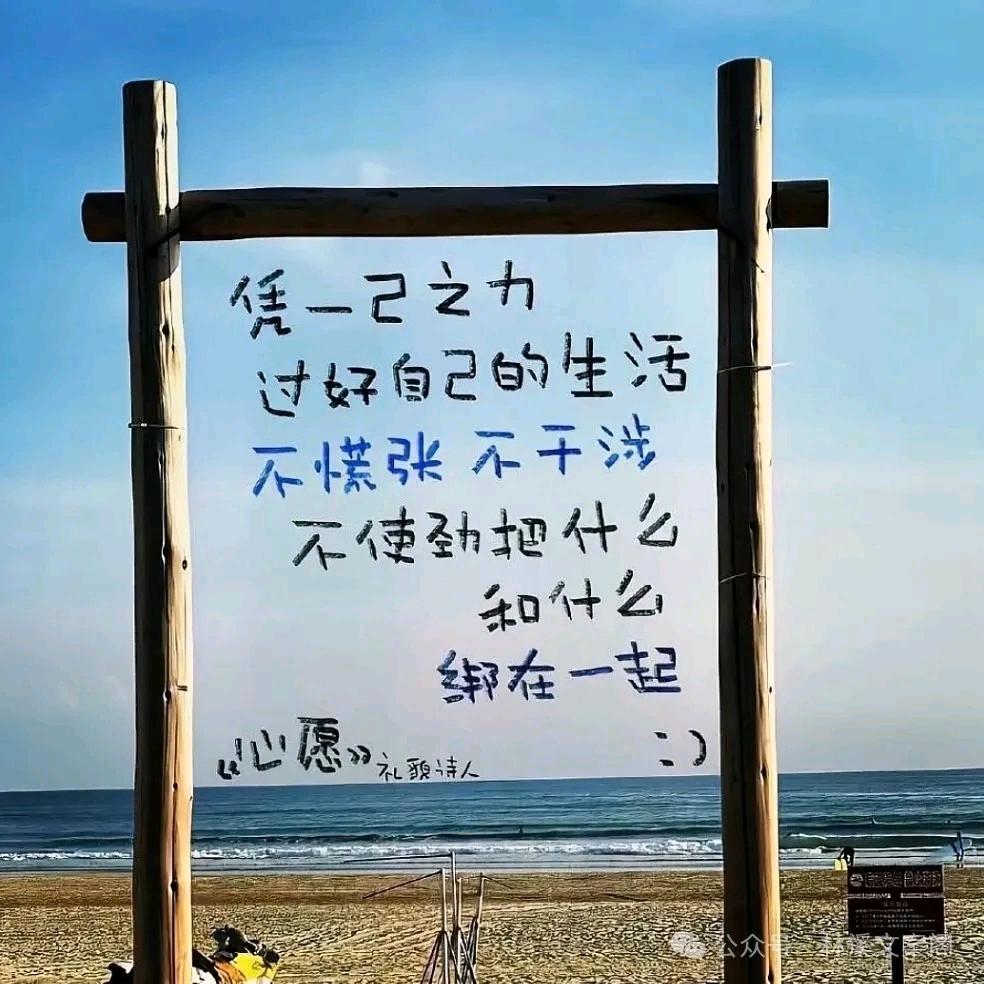 凭一己之力
过好自己的生活
不慌张 不干涉
不使劲把什么
和什么
绑在一起
:)
《心愿》礼貌诗人
公众号